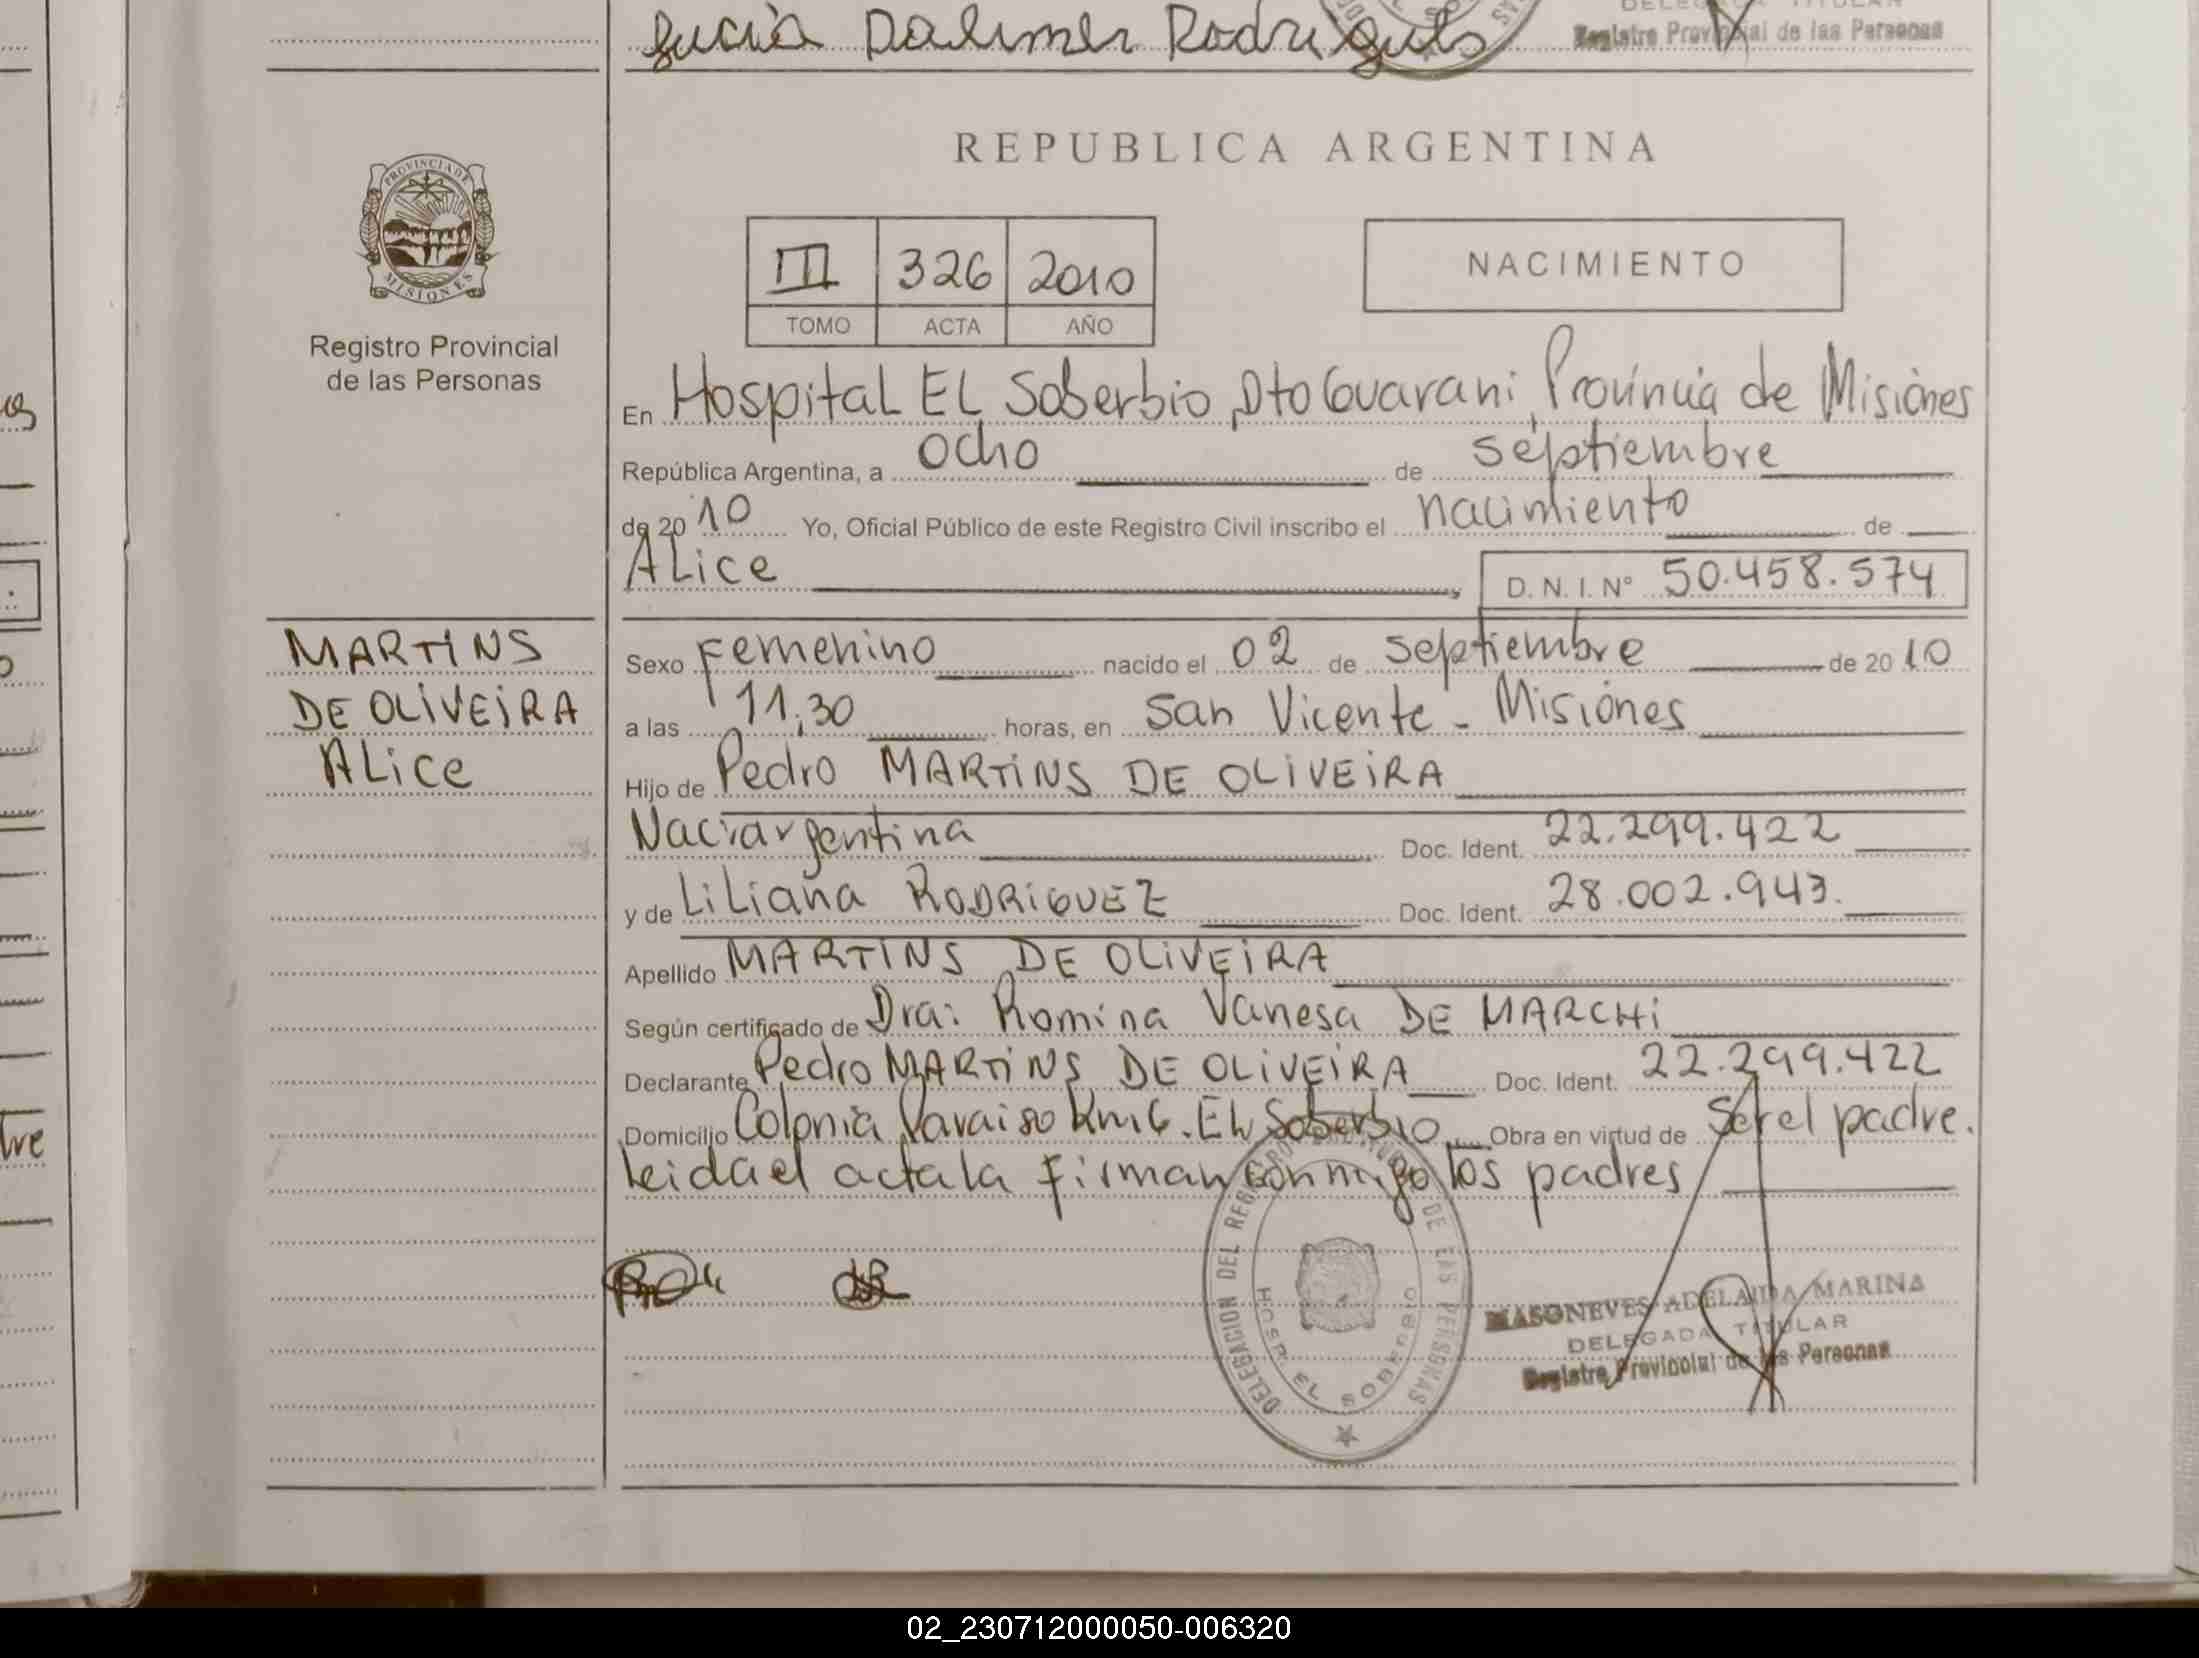 Lucia Dalimer Rodrigues
Registro Provincial de las Personas
REPUBLICA ARGENTINA
PROVINCIA DE
MISIONES
Registro Provincial
de las Personas
III 326 2010
TOMO ACTA AÑO
NACIMIENTO
En Hospital EL Soberbio, Dto Guarani, Província de Misiónes
República Argentina, a ocho de septiembre
de 2010 Yo, Oficial Público de este Registro Civil inscribo el nacimiento de
ALice, D. N. I. Nº 50.458.574
MARTINS
DE OLIVEIRA
ALice
Sexo Femenino nacido el 02 de septiembre de 2010
a las 11,30 horas, en San Vicente - Misiónes
Hijo de Pedro MARTINS DE OLIVEIRA
Nac: argentina Doc. Ident. 22.299.422
y de LiLiana RODRIGUEZ Doc. Ident. 28.002.943.
Apellido MARTINS DE OLIVEIRA
Según certificado de Dra: Romina Vanesa DE MARCHI
Declarante Pedro MARTINS DE OLIVEIRA Doc. Ident. 22.299.422
Domicilio Colonia Paraiso Km 6. EL Soberbio Obra en virtud de Ser el padre.
Leida el acta la firman conmigo los padres
DELEGACION DEL REGISTRO DE LAS PERSONAS
HOSP. EL SOBERBIO
MASONEVES ADELAIDA MARINA
DELEGADA TITULAR
Registro Provincial de las Personas
02_230712000050-006320